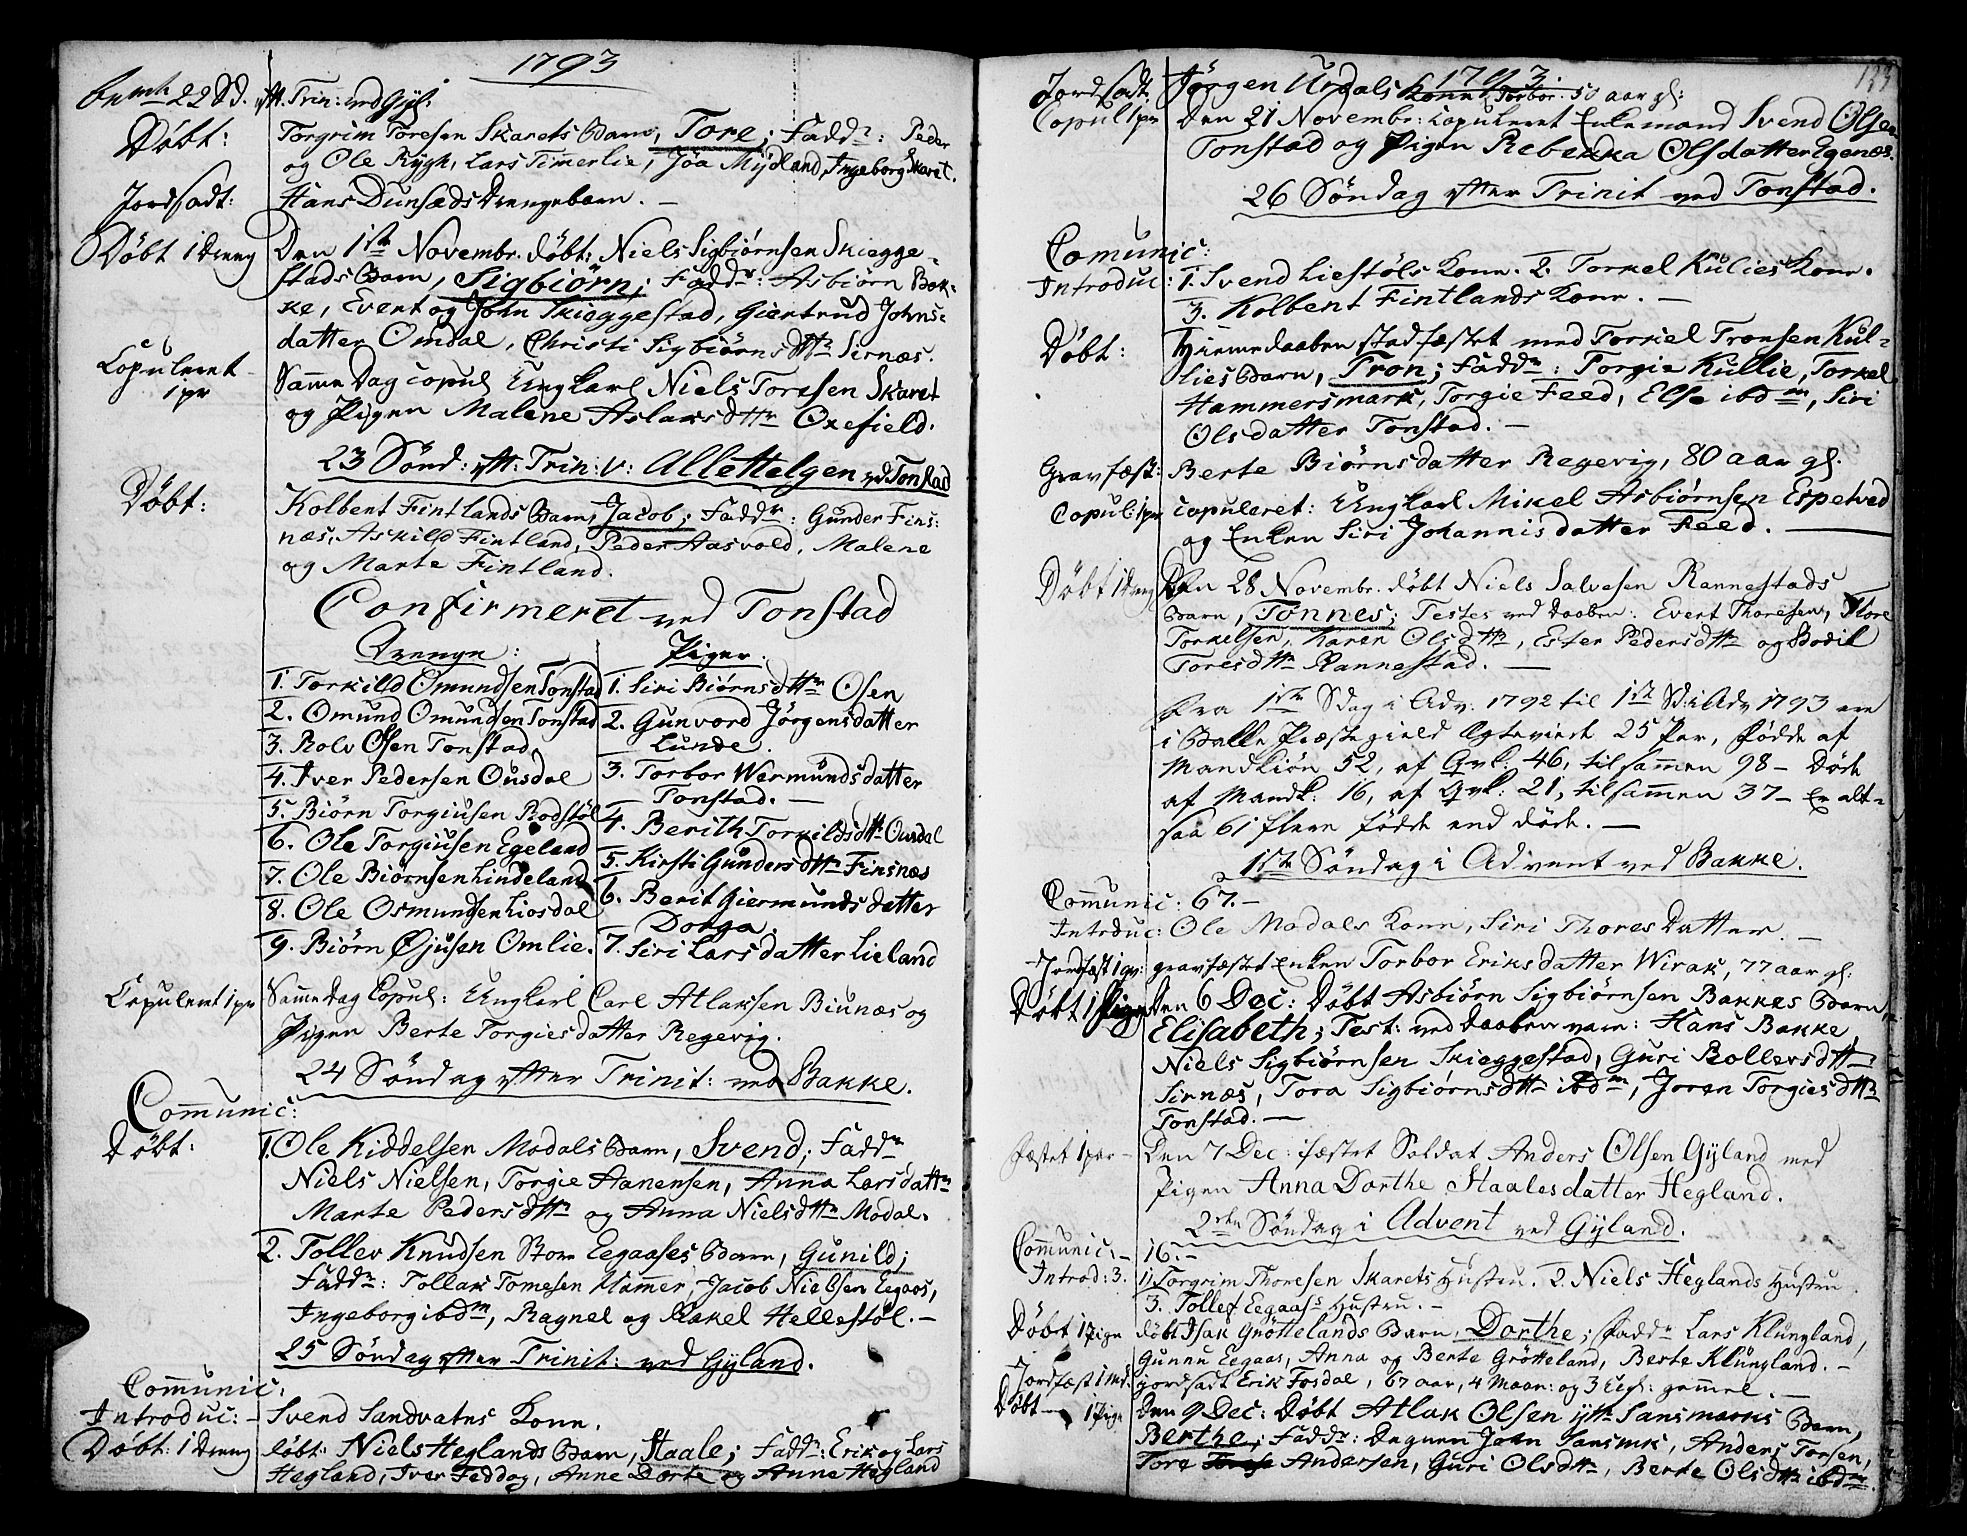 1793
22 Sd. eft. Trin: ved Gyl:
Døbt: Torgrim Toresen Skarets Barn, Tore; Faddr: Peder
og Ole Rygh, Lars Timerlie, Joa Mydland, Ingeborg Skaret.
Jordfæst: Hans Dunsæds Drengebarn. –
Døbt 1 Dreng Den 1ste Novembr. døbt: Niels Sigbiørnsen Skiegge-
stads Barn, Sigbiørn; Faddr: Asbiørn Bak-
ke, Evert og John Skieggestad, Giertrud Johns-
datter Omdal, Christi Sigbiørnsdttr Sirnæs.
Copuleret 1 pr Samme Dag copul Ungkarl Niels Toresen Skaret
og Pigen Malene Aslaksdttr Oxefield.
23 Sønd: eft: Trin: v: Alle Helgen ved Tonstad
Døbt: Kolbent Fintlands Barn, Jacob; Faddr: Gunder Fins-
næs, Askild Fintland, Peder Aasvold, Malene
og Marte Fintland.
Confirmeret ved Tonstad
Drenge:
1. Torkild Omundsen Tonstad
2. Omund Omundsen Tonstad
3. Rolv Olsen Tonstad
4. Iver Pedersen Ousdal
5. Biørn Torgiusen Rodstøl
6. Ole Torgiusen Egeland
7. Ole Biørnsen Lindeland
8. Ole Osmundsen Liosdal
9. Biørn Øjusen Omlie.
Piger.
1. Siri Biørnsdttr Osen
2. Gunvord Jørgensdatter
Lunde.
3. Torbor Wermundsdatter
Tonstad. –
4. Berith Torkildsdttr Ousdal
5. Kirsti Gundersdttr Finsnæs
6. Berit Giermundsdatter
Dorga.
7. Siri Larsdatter Lieland
Copuleret 1 pr Samme Dag Copul: Ungkarl Carl Atlaksen Biunæs og
Pigen Berte Torgiesdatter Regevig.
24 Søndag efter Trinit: ved Bakke.
Communic:
Døbt: 1. Ole Kiddelsen Modals Barn, Svend; Faddr
Niels Nielsen, Torgie Aanensen, Anna Larsdattr
Marte Pedersdttr og Anna Nielsdttr Modal.
2. Tollev Knudsen Store Eegaases Barn, Gunild;
Faddr: Tollak Tomesen Hammer, Jacob Nielsen Eegaas,
Ingeborg ibdm, Ragnel og Rakel Hellestøl. –
25 Søndag efter Trinit: ved Gyland.
Communic:
Introduc: – Svend Sandvatns Kone.
Døbt: 1 Dreng døbt: Niels Heglands Barn, Staale; Faddr: Erik og Lars
Hegland, Iver Feddog, Anne Dorte og Anne Hegland
1793.
Jordfæst: Jørgen Urdals Kone Torbor 50 aar gl:
Copul 1 pr Den 21 Novembr: copuleret Enkemand Svend Olsen
Tonstad og Pigen Rebekka Olsdatter Egenæs.
26 Søndag efter Trinit ved Tonstad.
Communic:
Introduc: 1. Svend Liestøls Kone. 2. Torkel Kulies Kone.
3. Kolbent Fintlands Kone. –
Døbt: Hiemmedaaben stadfæstet med Torkel Tronsen Kul-
lies Barn, Tron; Faddr: Torgie Kullie, Torkel
Hammersmark, Torgie Feed, Else ibdm, Siri
Olsdatter Tonstad. –
Gravfæst: Berte Biørnsdatter Regevig, 80 aar gl.
Copul: 1 pr copuleret: Ungkarl Mikel Asbiørnsen Espetved
og Enken Siri Johannisdatter Feed. –
Døbt 1 Dreng Den 28 Novembr. døbt Niels Salvesen Rannestads
Barn, Tønnes; Testes ved Daaben: Evert Thoresen, Thore
Torkelsen, Karen Olsdttr, Ester Pedersdttr og Bodil
Toresdttr Rannestad. –
Fra 1ste Sdag i Adv: 1792 til 1ste Sd: i Adv 1793 ere
i Balle Præstegield Egteviet 25 Par, fødde af
Mandkiøn 52, af Qvk: 46, tilsammen 98 – Døde
af Mandk: 16, af Qvk: 21, tilsammen 37 – Er alt-
saa 61 flere fødde end døde. –
1ste Søndag i Advent ved Bakke.
Communic: 67. –
Introduc: Ole Modals Kone, Siri Thores Datter. –
Jordfæst 1 qv: gravfæstet Enken Torbor Eriksdatter Wirak, 77 aar gl:
Døbt 1 Pige Den 6 Dec: Døbt Asbiørn Sigbiørnsen Bakkes Barn,
Elisabeth; Test: ved Daaben vare: Hans Bakke
Niels Sigbiørnsen Skieggestad, Guri Rollevsdttr
Sirnæs, Tora Sigbiørnsdttr ibdm, Joren Torgiesdttr
Tonstad. –
Fæstet 1 par – Den 7 Dec: fæstet Soldat Anders Olsen Gyland med
Pigen Anna Dorthe Staalesdatter Hegland.
2den Søndag i Advent ved Gyland.
Communic: – 16. –
Introd: 3. 1) Torgrim Thoresen Skarets Hustru. 2. Niels Heglands Hustru
3. Tollef Eegaas's Hustru. –
Døbt 1 Pige døbt Isak Grøttelands Barn, Dorthe; Faddr Lars Klungland,
Gunnu Eegaas, Anna og Berte Grøtteland, Berte Klungland. –
Jordfæst 1 Md. jordfæst Erik Fosdal, 67 aar, 4 Maan: og 3 Uger: gammel. –
Døbt – 1 Pige Den 9 Dec: Døbt Atlak Olsen ytte Sansmarks Barn,
Berthe; Faddr: Degnen Jaen Sansmk, Anders Torsen,
Tore Andersen, Guri Olsdttr, Berte Olsdttr ibdm.